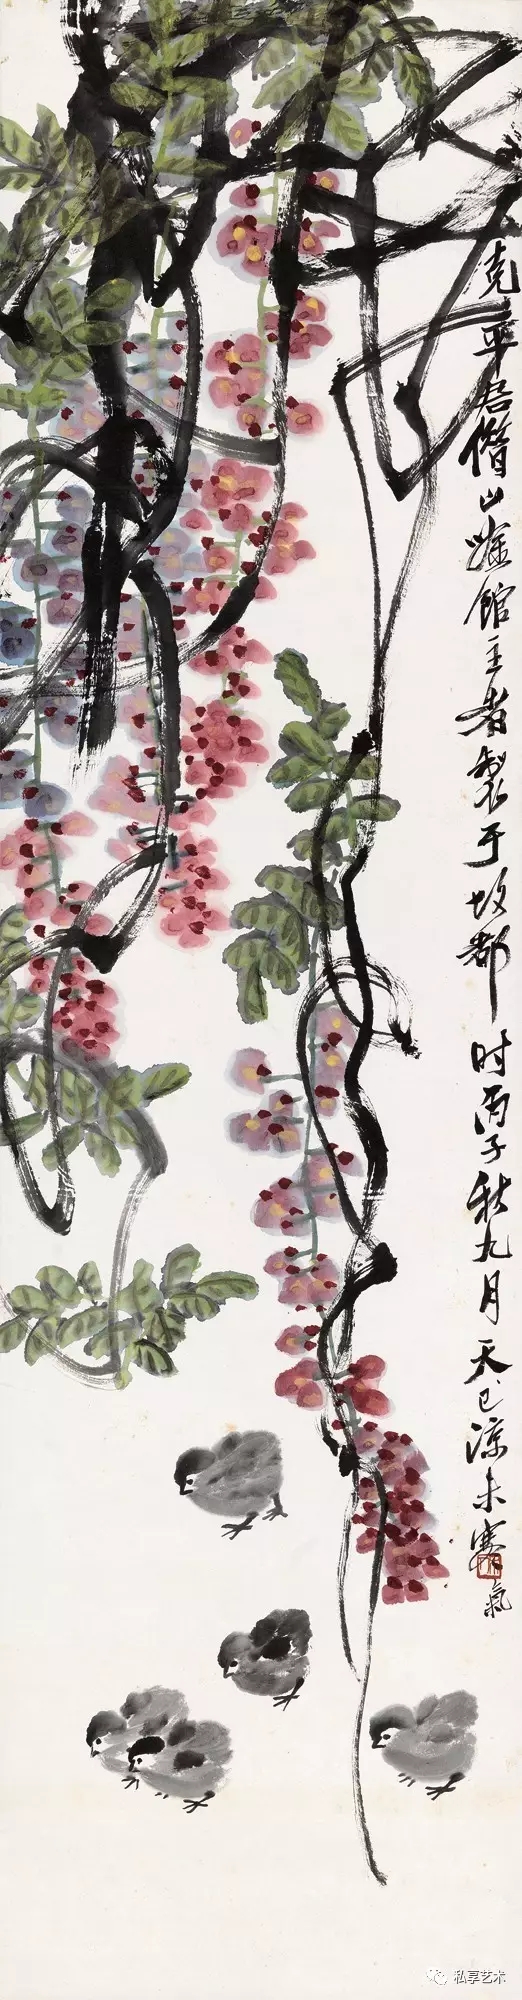 克平君借山唫館主者製于故都时丙子秋九月天已涼未寒氣
私享艺术